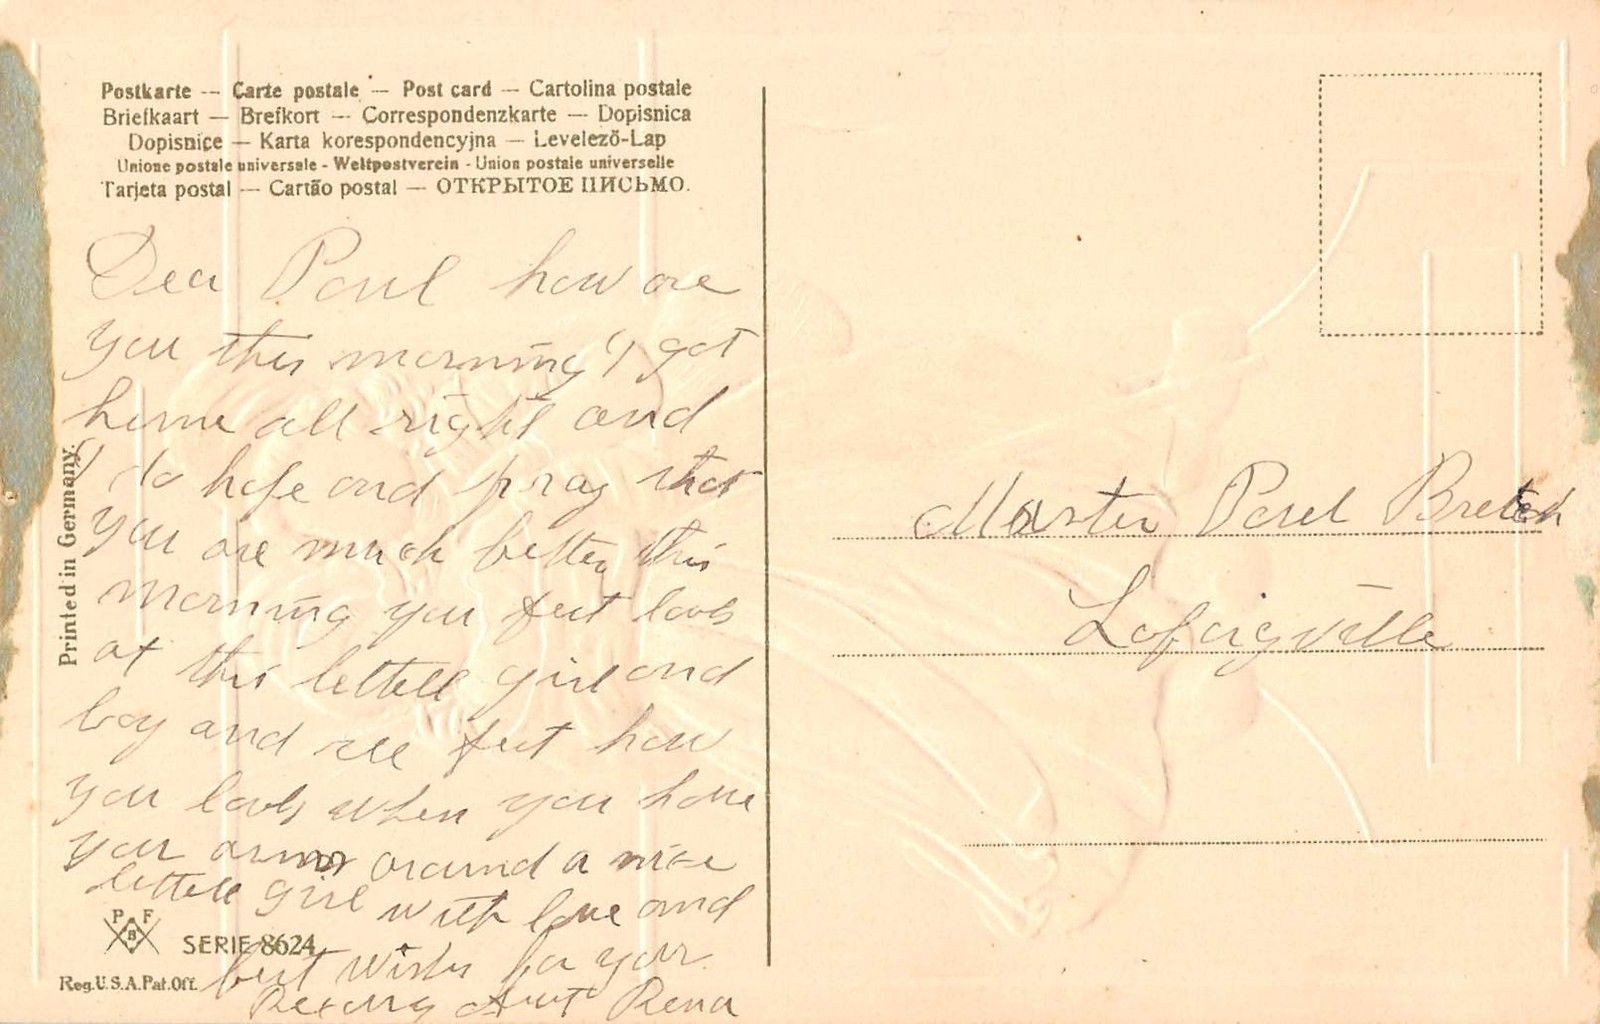 Postkarte — Carte postale — Post card — Cartolina postale
Briefkaart — Brefkort — Correspondenzkarte — Dopisnica
Dopisnice — Karta korespondencyjna — Levelező-Lap
Unione postale universale - Weltpostverein - Union postale universelle
Tarjeta postal — Cartão postal — ОТКРЫТОЕ ПИСЬМО.
Dear Paul how are
you this morning I got
home all right and
I do hope and pray that
you are much better this
morning you just look
at this lettell girl and
boy and see just how
you look when you have
your arms around a nice
lettell girl with love and
best wishs for your
Aunt Rena
Printed in Germany.
P F
B
SERIE 8624
Reg. U.S.A. Pat. Off.
Master Paul
Lafargville